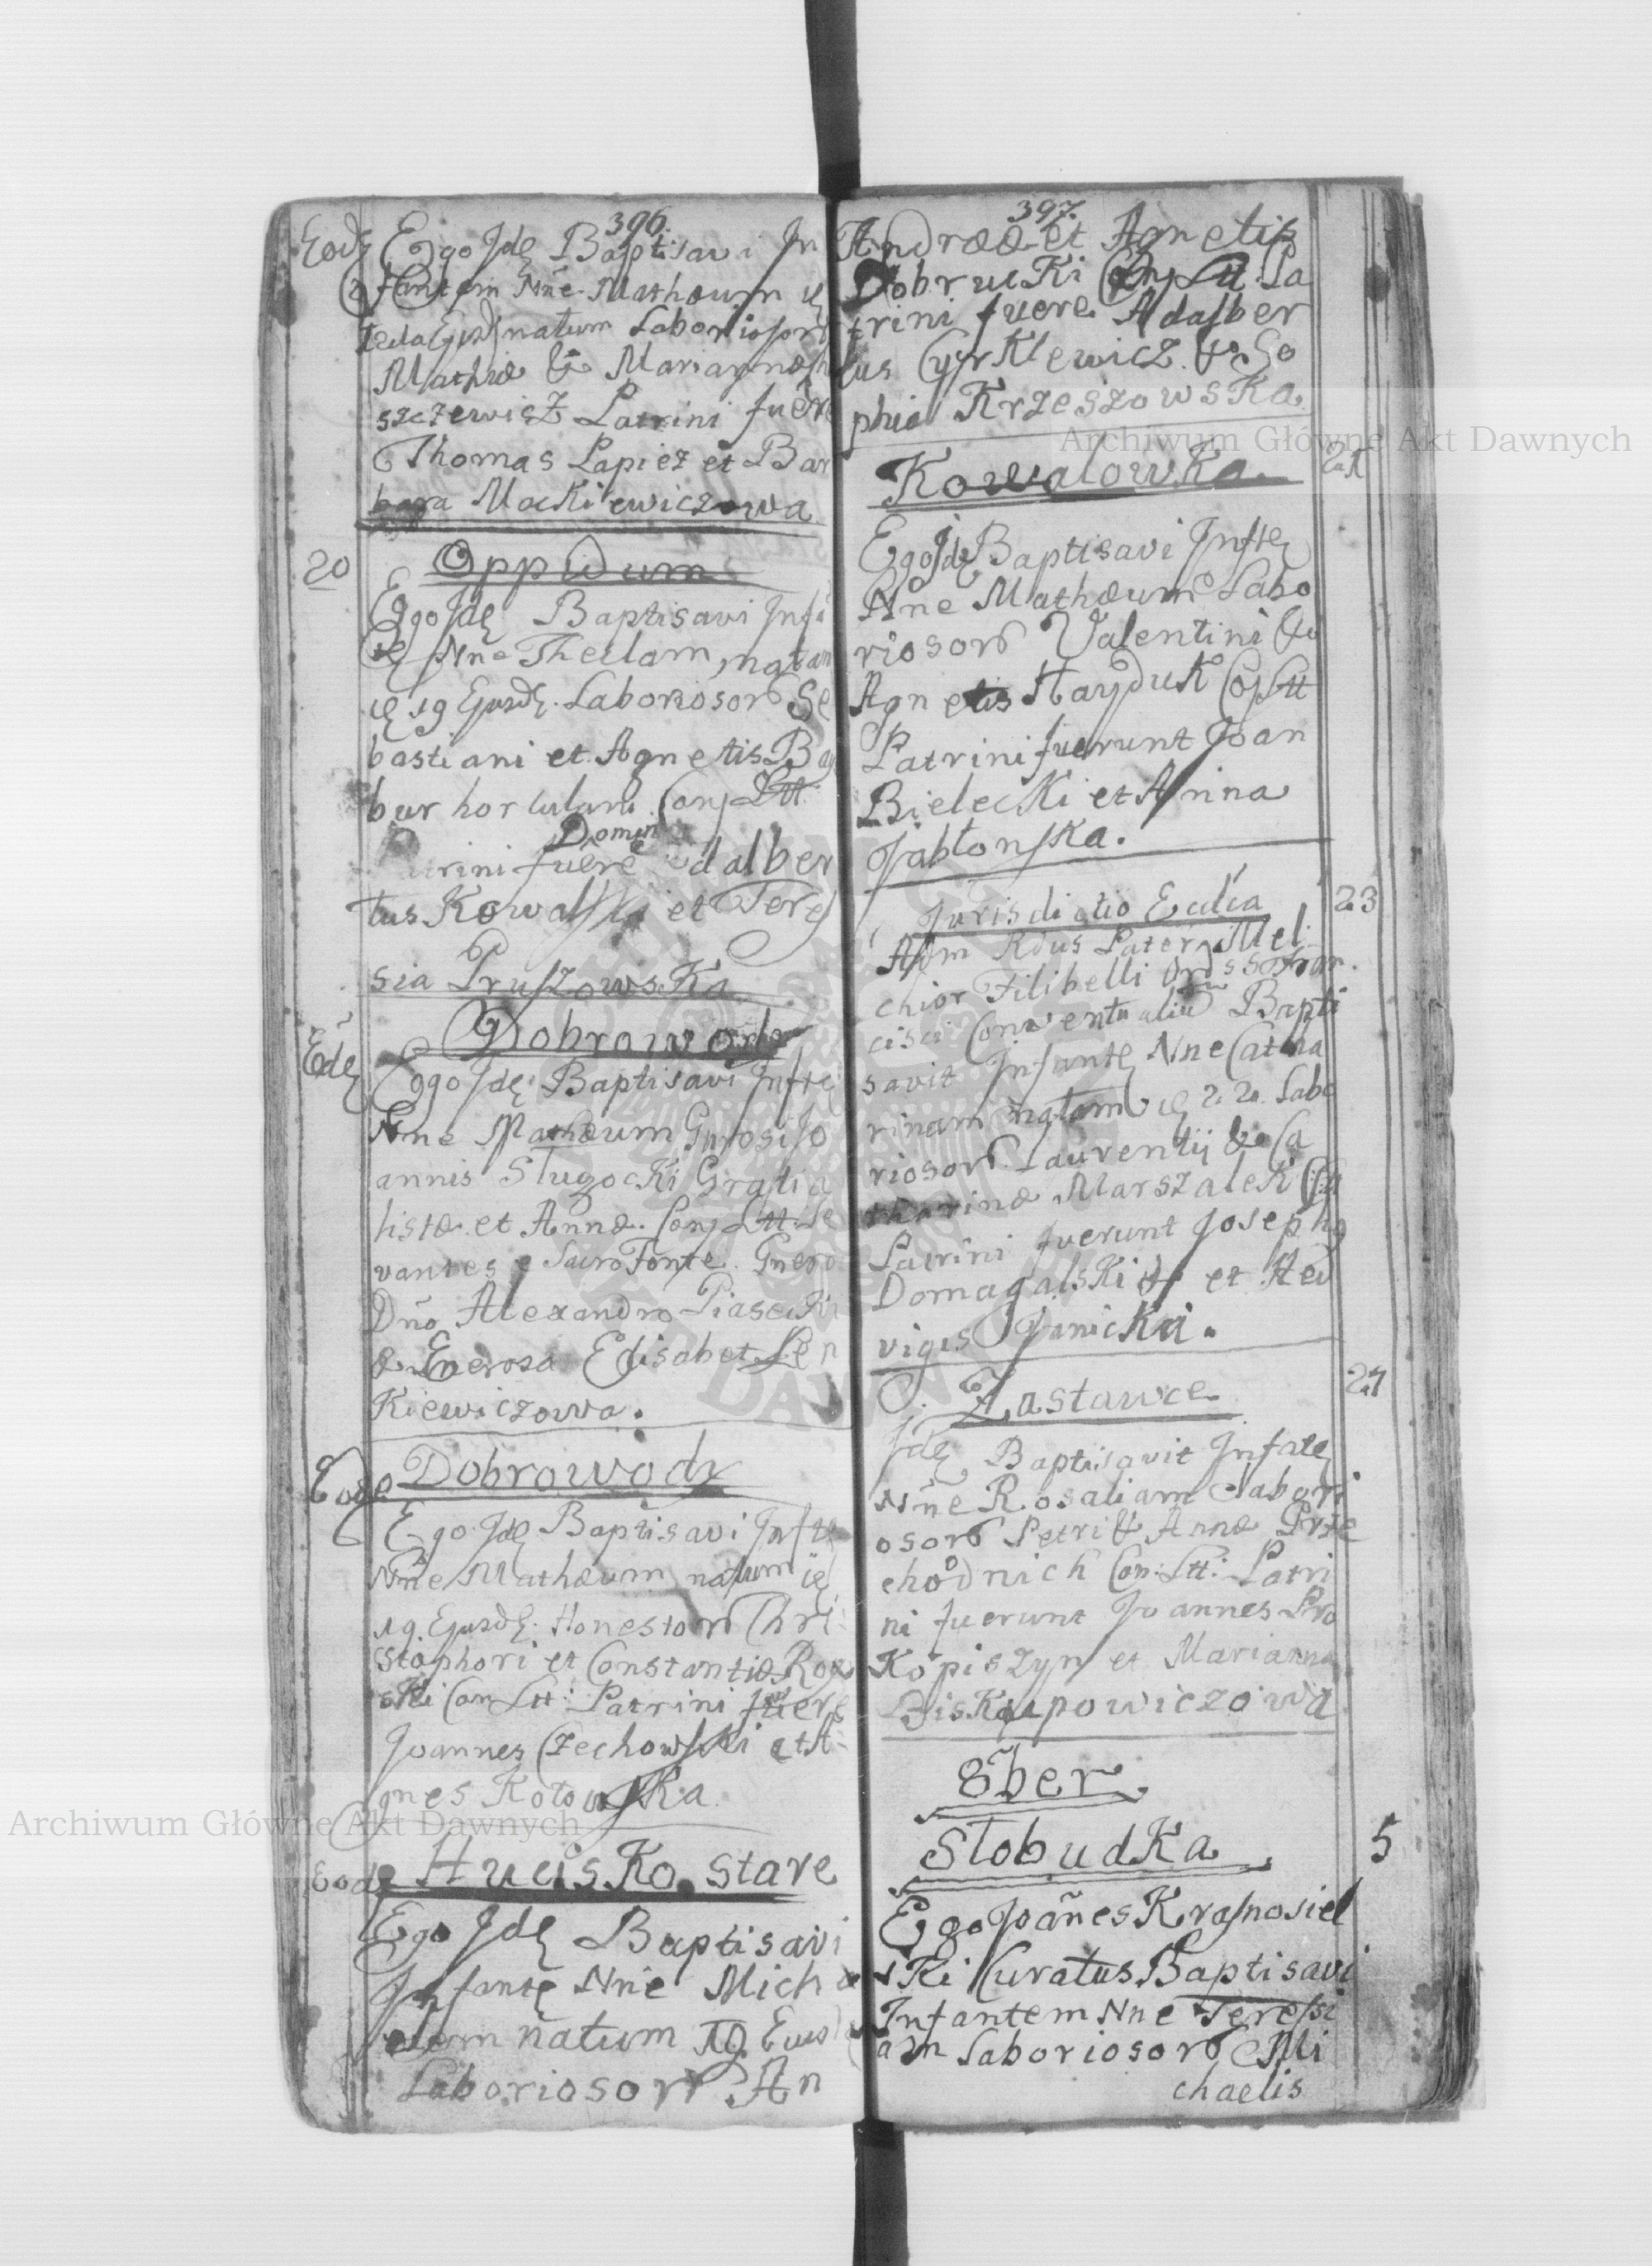 396.
Eodē Ego Jdē Baptisavi In
fantem Nñe Mathæum
natum Laboriosorū
Mathiæ & Mariannæ
szczewicz Patrini fuere
Thomas Lapiez et Bar
bara Mackiewiczowa
20 Oppidum
Ego Jdē Baptisavi Inf
Nñe Theclam, natam
19 Ejusdē. Laboriosorū Se
bastiani et Agnetis Ba
bur hortulani Conj Ltt.
Domin
Patrini fuere Adalber
tus Kowalski et Tere
sia Pruszowska
Dobrowody
Eodē Ego Jdē Baptisavi Inftē
Nne Mathæum Gnrosi Jo
annis Slugocki Gratia
listæ et Annæ Conj Ltt. Le
vantes e Sacro Fonte. Gneroso
Dño Alexandro Piasecki
& Gnerosa Elisabet Len
kiewiczowa.
Eodē Dobrowody
Ego Jdē Baptisavi Inftē
Nñe Mathæum natum
19. Ejusdē. Honestorū Chri
stophori et Constantiæ
ski Con Ltt: Patrini fuere
Joannes Czechowski et A
gnes Kotowska
Eodē Hucisko stare
Ego Jdē Baptisavi
Infantē Nñe Micha
elem natum 19. Eius
Laboriosorū An
397.
Andrææ et Agnetis
Dobrucki Conj Ltt. Pa
trini fuere Adalber
tus Cyrklewicz & So
phia Krzeszowska.
Kowalowka.
Ego Jdē Baptisavi Inftē
Nñe Mathæum Labo
riosorū Valentini &
Agnetis Hayduk Conj Ltt
Patrini fuerunt Joan
Bielecki et Anna
Jabłonska.
Jurisdictio Eccl̃ia 23
Adm Rdus Pater Mel
chior Filibelli Ord S Fran
cisci Conventualiū Bapti
savit Infantē Nne Catha
rinam natam 22. Labo
riosorū Laurentij & Ca
tharinæ Marszalek
Patrini fuerunt Josephq
Domagalski et Hed
vigis Janicka.
Zastawce 24
Jdē Baptisavit Infatē
Nñe Rosaliam Labori
osorū Petri & Annæ Prze
chodnich Con: Ltt: Patri
ni fuerunt Joannes Pro
kopiszyn et Marianna
Biskupowiczowa
8ber
Słobudka 5
Ego Joañes Krasnosiel
ski Curatus Baptisavi
Infantem Nne Teressi
am Laboriosorū Mi
chaelis
Archiwum Główne Akt Dawnych
Archiwum Główne Akt Dawnych